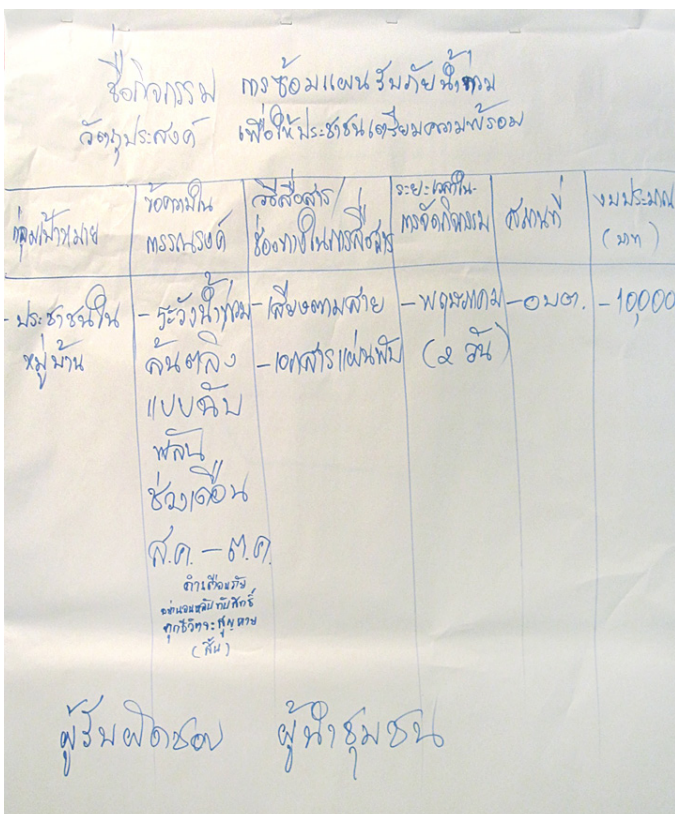 ชื่อกิจกรรม การซ้อมแผนรับภัยน้ำท่วม
วัตถุประสงค์ เพื่อให้ประชาชนเตรียมความพร้อม
กลุ่มเป้าหมาย
ข้อความใน
การรณรงค์
วิธีสื่อสาร/
ช่องทางในการสื่อสาร
ระยะเวลาใน
การจัดกิจกรรม
สถานที่
งบประมาณ
(บาท)
- ประชาชนใน
หมู่บ้าน
- ระวังน้ำท่วม
ล้นตลิ่ง
แบบฉับ
พลัน
ช่วงเดือน
ส.ค. - ต.ค.
คำเตือนภัย
อย่านอนหลับทับสิทธิ์
ทุกชีวิตจะสูญหาย
- เสียงตามสาย
- เอกสารแผ่นพับ
- พฤษภาคม
(2 วัน)
- อบต.
- 10,000
ผู้รับผิดชอบ ผู้นำชุมชน